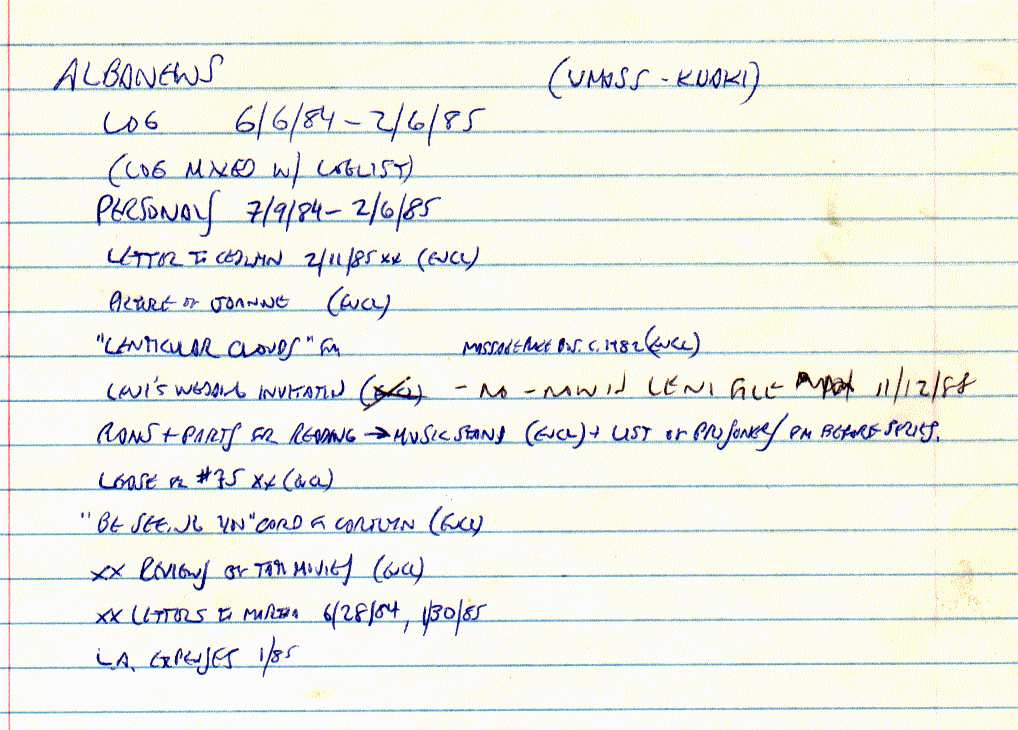 ALBANEWS (UMASS - KUAKI)
LOG 6/6/84 - 2/6/85
(LOG MIXED W/ LOGLIST)
PERSONALS 7/9/84 - 2/6/85
LETTER TO 2/11/85 XX (ENCL)
PICTURE OF JOANNE (ENCL)
"LENTICULAR CLOUDS" FM C. 1982 (ENCL)
LENI'S WEDDING INVITATION (ENCL) - NO - NOW IN LENI FILE 11/12/88
PLANS + PARTS FOR READING → MUSIC STAND (ENCL) + LIST OF PRISONERS PM BEFORE SERIES.
LEASE FOR #75 XX (ENCL)
"BE SEEING YOU" CARD (ENCL)
XX REVIEWS OF MOVIES (ENCL)
XX LETTERS TO MARTHA 6/28/84, 1/30/85
L.A. EXPENSES 1/85